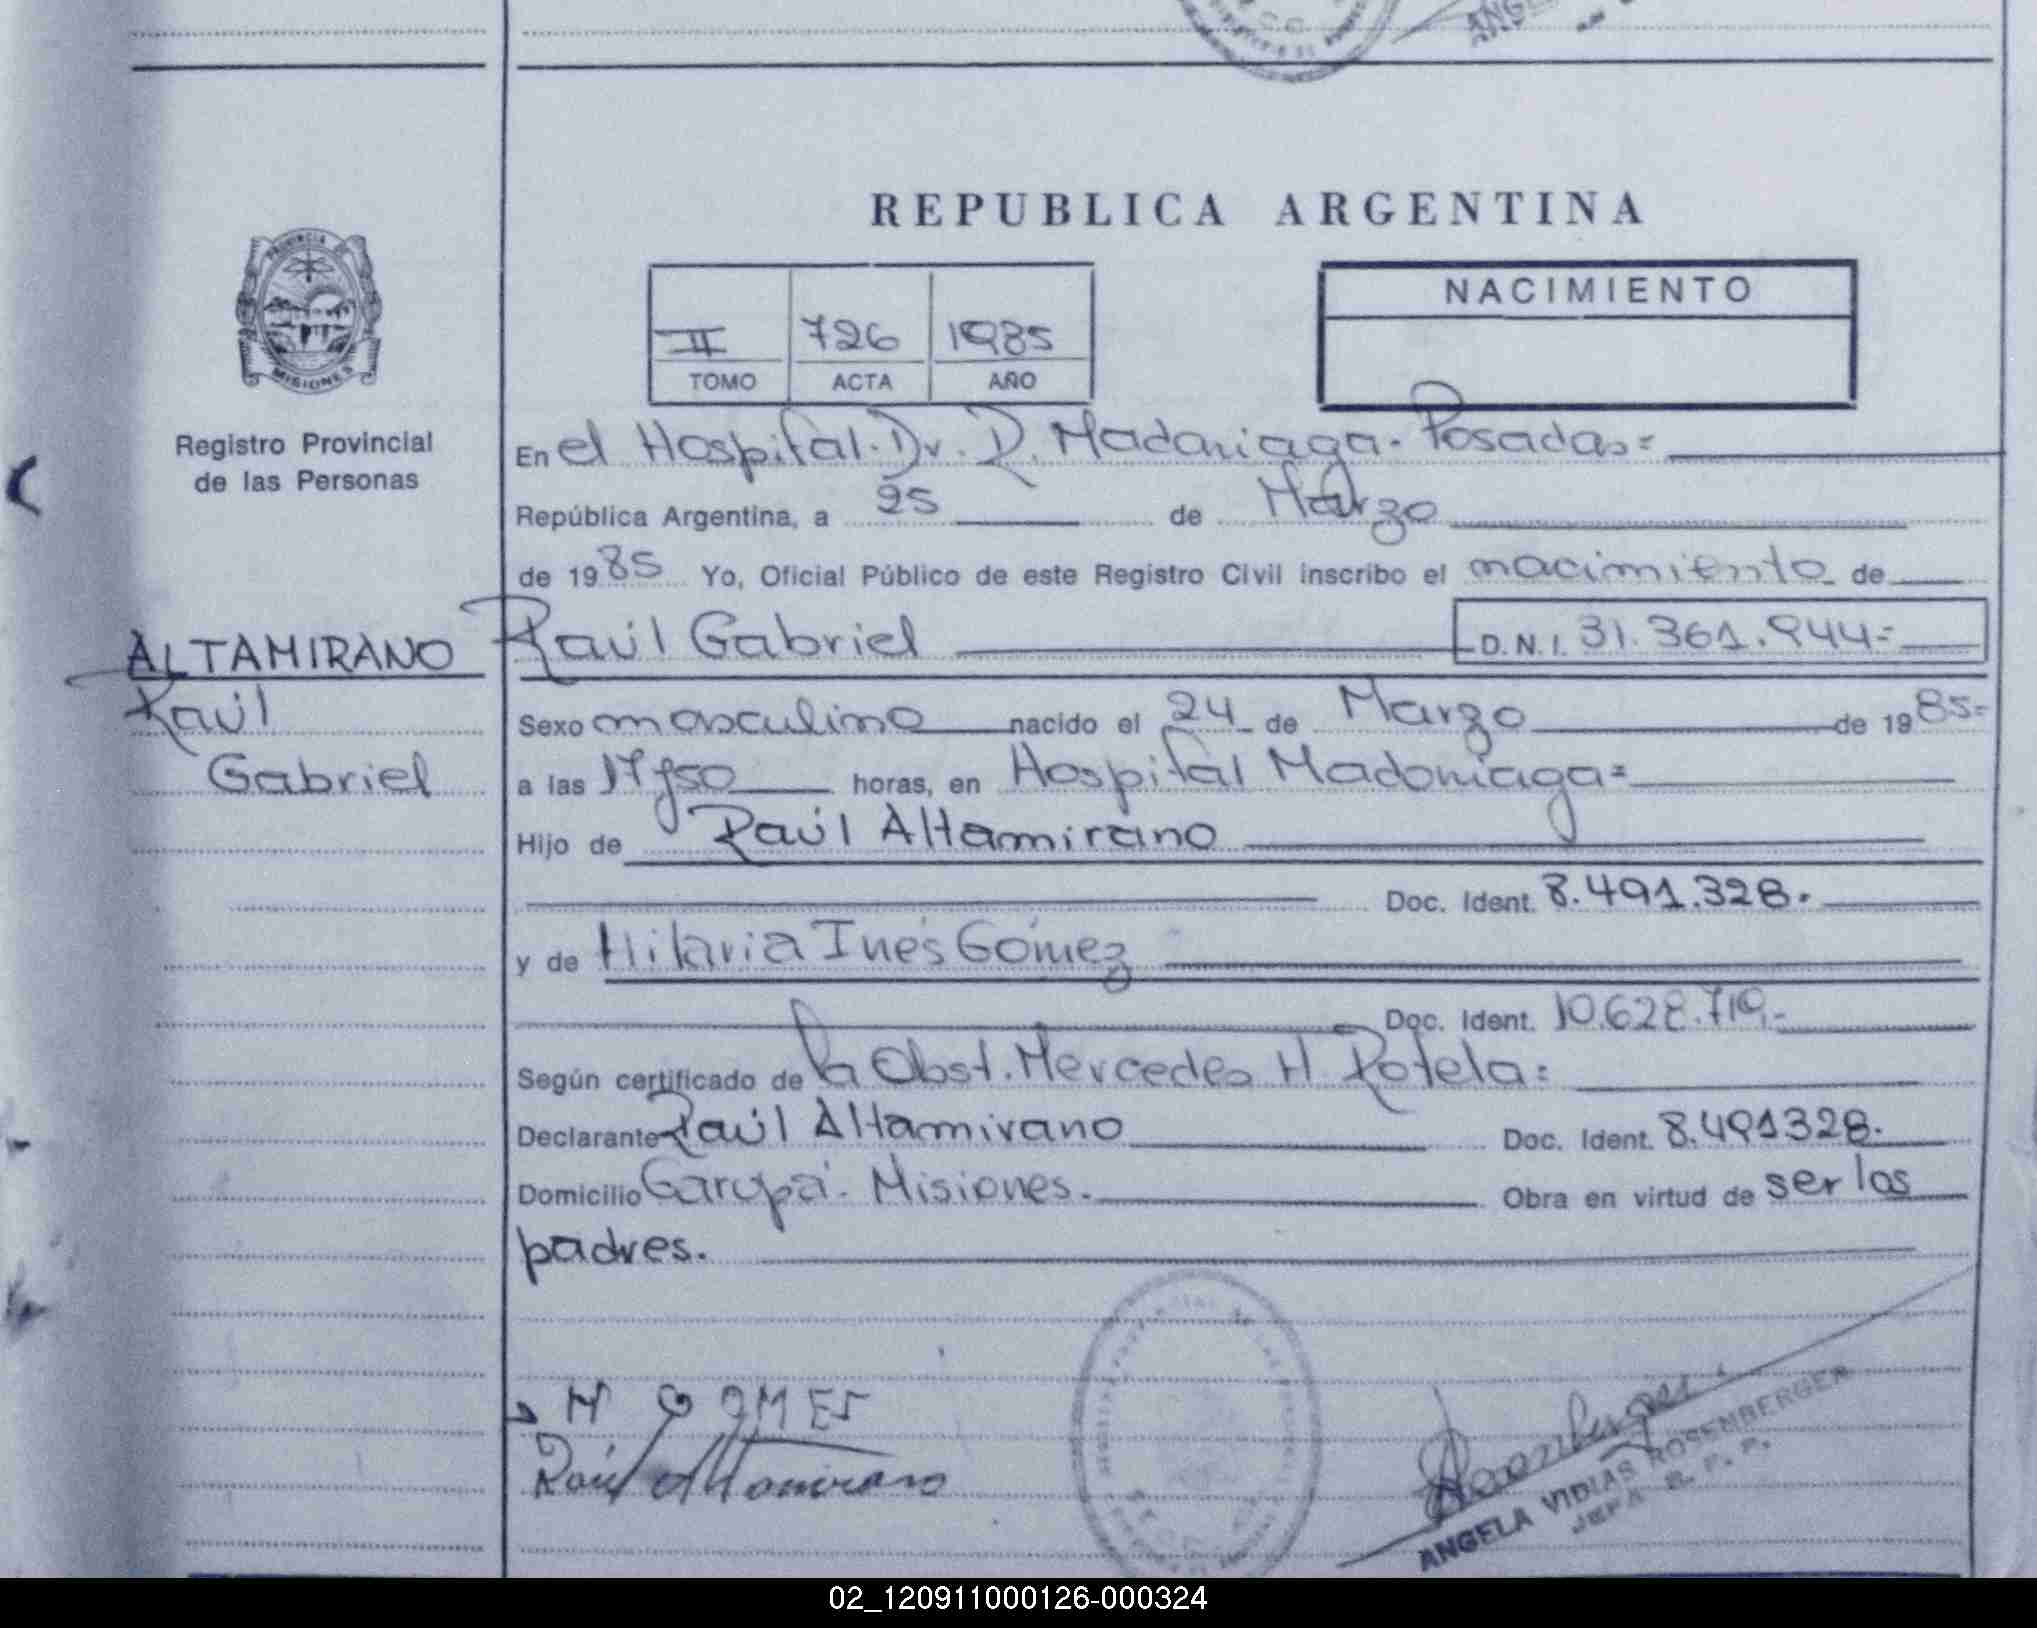 REPUBLICA ARGENTINA
PROVINCIA
MISIONES
Registro Provincial
de las Personas
II 726 1985
TOMO ACTA AÑO
NACIMIENTO
En el Hospital. Dr. R. Madariaga. Posadas=
República Argentina, a 25 de Marzo
de 1985 Yo, Oficial Público de este Registro Civil inscribo el nacimiento de
ALTAMIRANO
Raúl
Gabriel
Raúl Gabriel D.N.I. 31.361.944=
Sexo masculino nacido el 24 de Marzo de 1985=
a las 17 y 50 horas, en Hospital Madariaga=
Hijo de Raúl Altamirano
Doc. Ident. 8.491.328.
y de Hilaria Inés Gómez
Doc. Ident. 10.628.710.-
Según certificado de la Obst. Mercedes H Rotela=
Declarante Raúl Altamirano Doc. Ident. 8.491328.
Domicilio Garupá. Misiones. Obra en virtud de ser los
padres.
H GOMES
Raúl Altamirano
ANGELA VIDIAS ROSENBERGER
JEFA R. P. P.
02_120911000126-000324